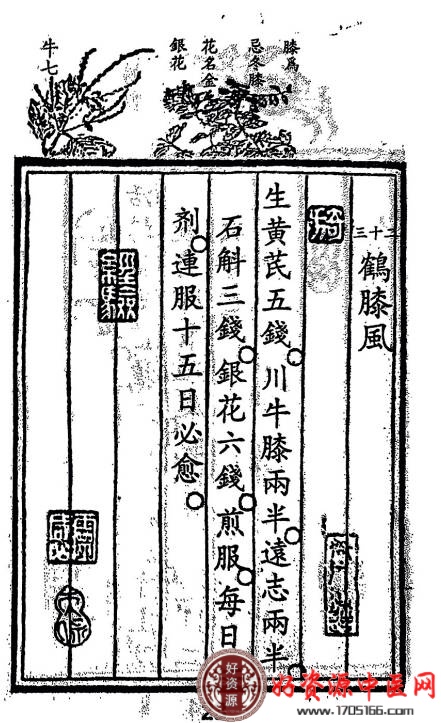 膝爲
忌冬膝
花名金
銀花
牛七
二十三
鶴膝風
生黄芪五錢。川牛膝兩半。遠志兩半。
石斛三錢。銀花六錢。煎服。每日
剂。連服十五日必愈。
好资源
好资源中医网
www.1705166.com